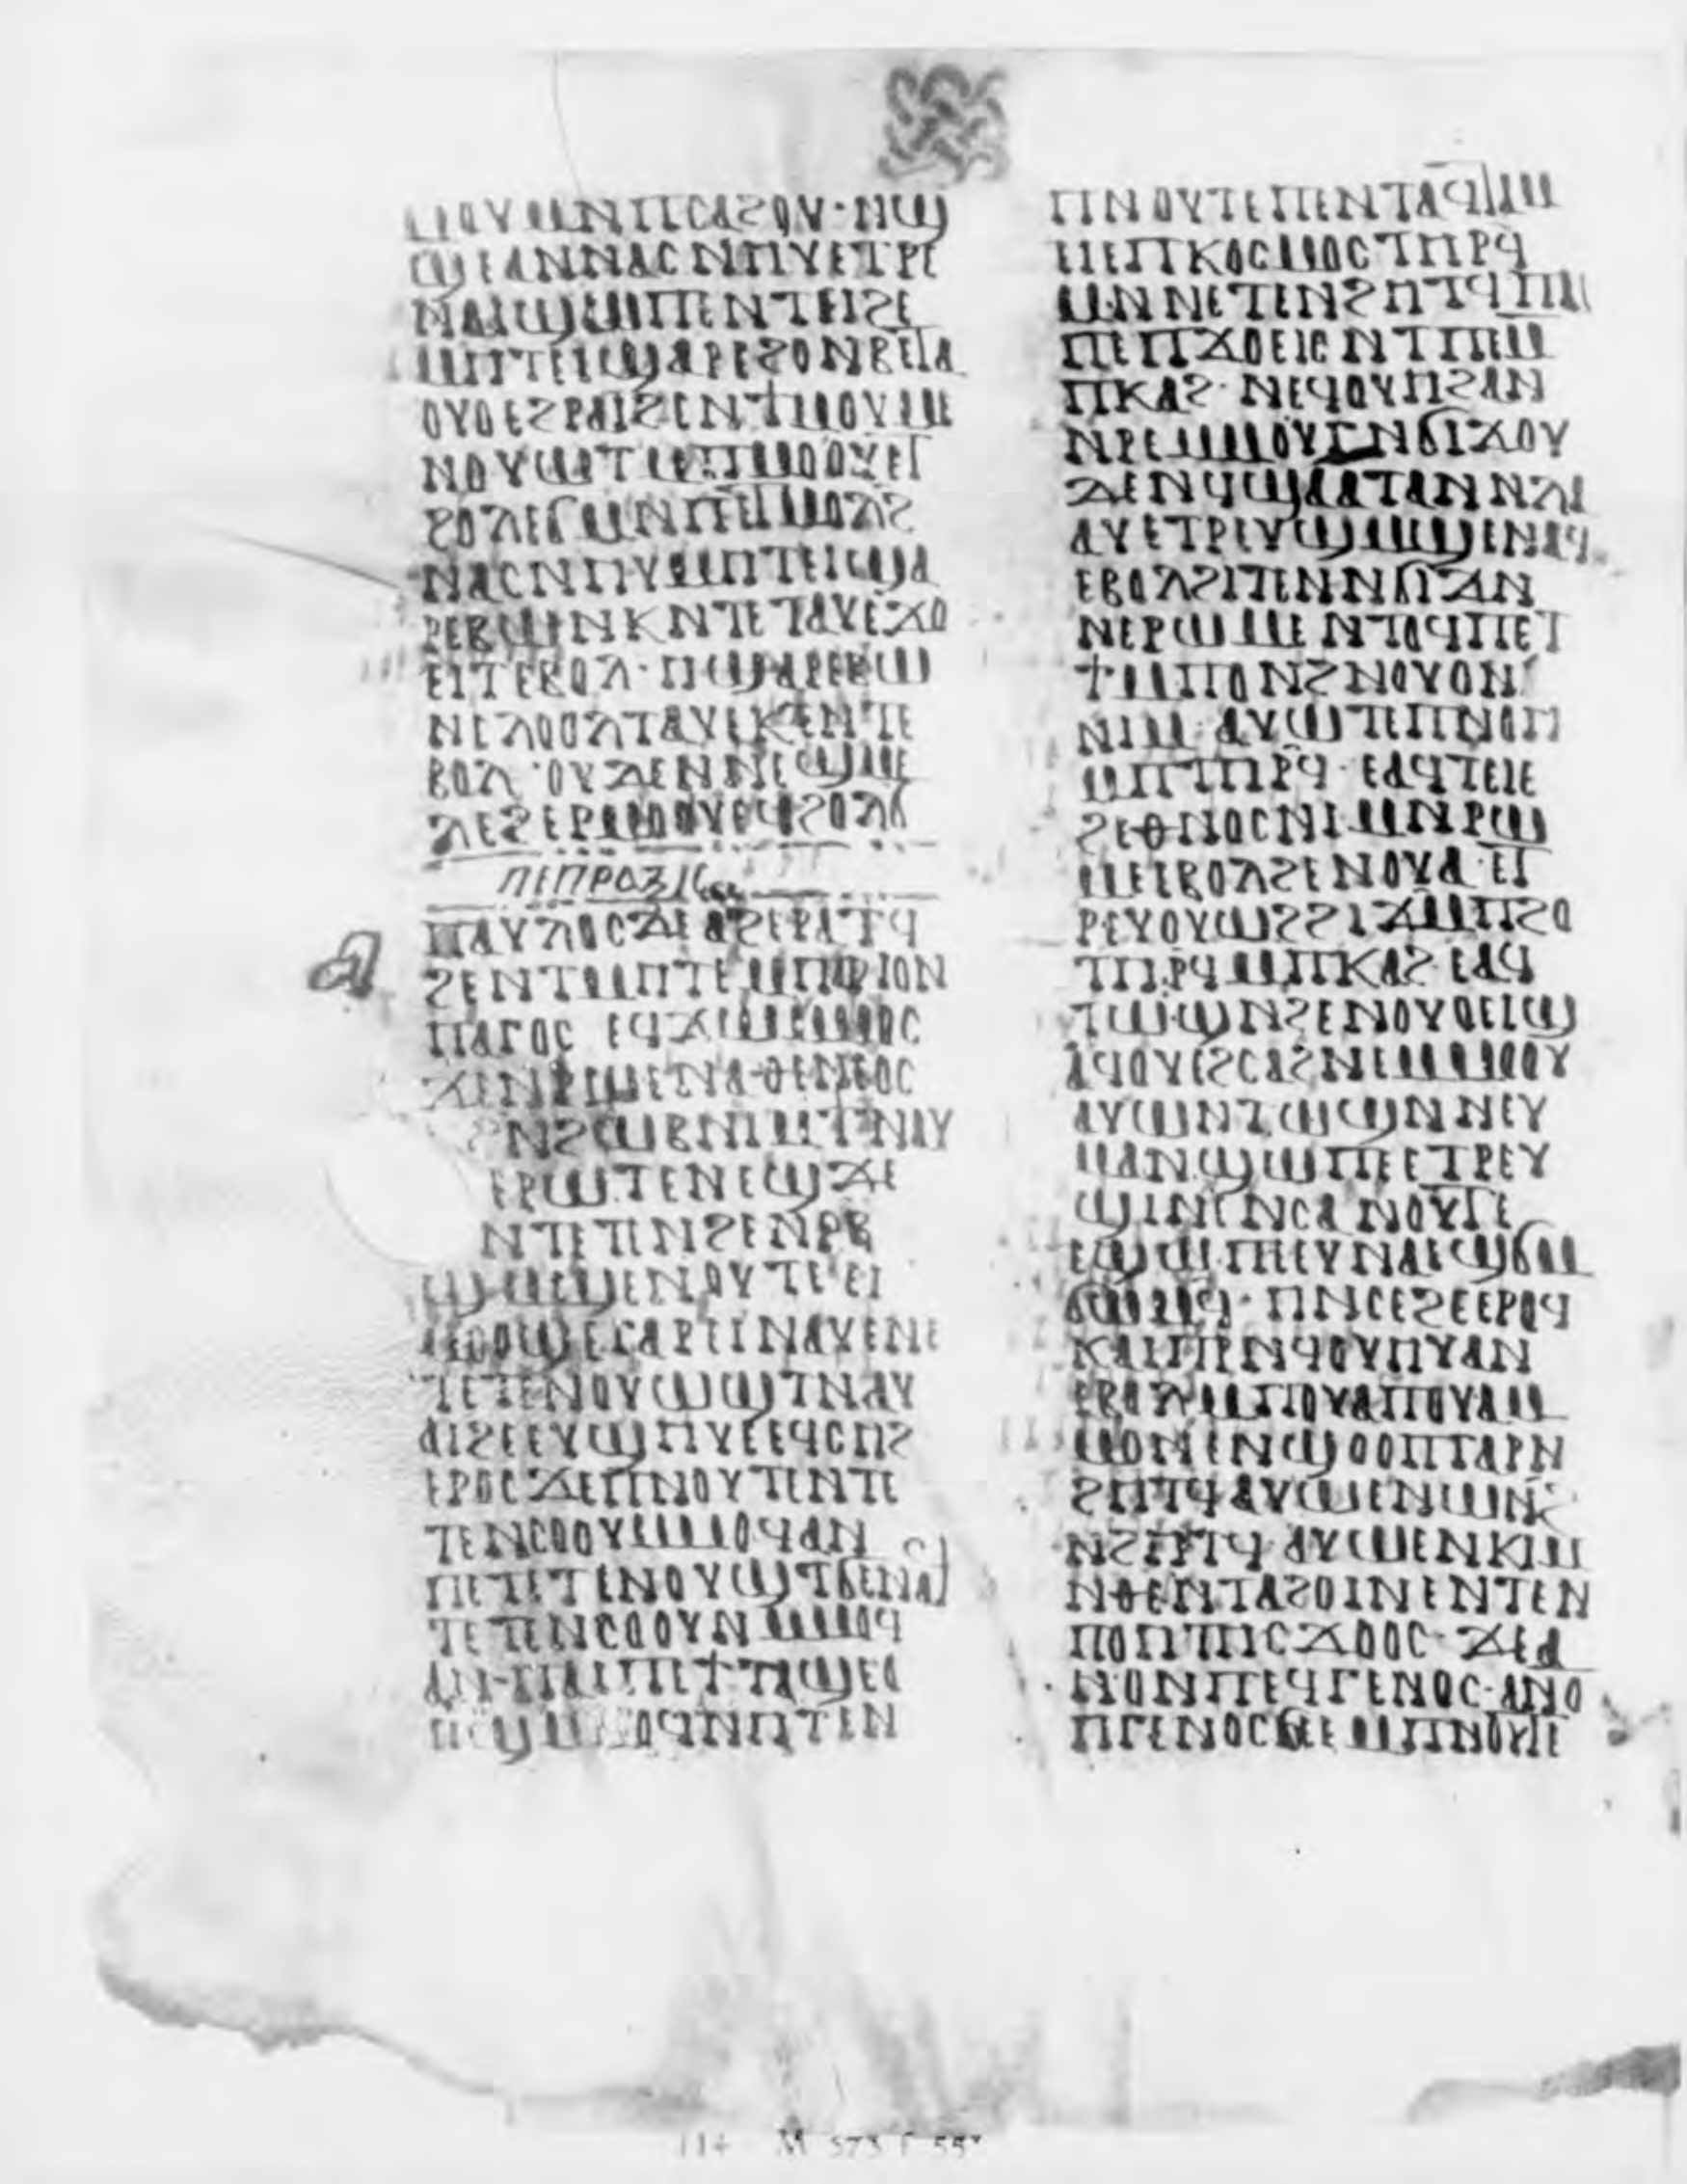 ⲙⲟⲩ ⲙⲛⲡⲥⲁϩⲟⲩ·ⲛϣ
ϣⲉⲁⲛⲛⲁⲥⲛⲏⲩⲉⲧⲣⲉ
ⲛⲁⲓϣⲱⲡⲉⲛⲧⲉⲓϩⲉ
ⲙⲏⲧⲉⲓϣⲁⲣⲉϩⲟⲛⲃⲉⲧⲁ
ⲟⲩⲟⲉϩⲣⲁⲓϩⲉⲛϯⲙⲟⲩⲙⲉ
ⲛⲟⲩⲱⲧⲙⲡⲙⲟⲟⲩⲉⲧ
ϩⲟⲗⲉϭⲙⲛⲡⲉⲧⲙⲟⲗϩ
ⲛⲁⲥⲛⲏⲩⲙⲏⲧⲉⲓϣⲁ
ⲣⲉⲃⲱⲛⲕⲛⲧⲉⲧⲁⲩⲉϫⲟ
ⲉⲓⲧⲉⲃⲟⲗ·ⲏϣⲁⲣⲉⲃⲱ
ⲛⲉⲗⲟⲟⲗⲧⲁⲩⲉⲕⲉⲛⲧⲉ
ⲃⲟⲗ·ⲟⲩⲇⲉⲛⲛⲉϣⲙⲉ
ⲗⲉϩⲉⲣⲙⲟⲟⲩⲉϥϩⲟⲗϭ
ⲡⲉⲡⲣⲁⲝⲓⲥ
ⲡⲁⲩⲗⲟⲥⲇⲉⲁϩⲉⲣⲁⲧϥ
ϩⲉⲛⲧⲙⲏⲧⲉⲙⲡⲁⲣⲓⲟⲛ
ⲡⲁⲅⲟⲥ ⲉϥϫⲱⲙⲙⲟⲥ
ϫⲉⲛⲣⲱⲙⲉⲛⲁⲑⲉⲛⲉⲟⲥ
ϩⲛϩⲱⲃⲛⲓⲙϯⲛⲁⲩ
ⲉⲣⲱⲧⲉⲛⲉϣϫⲉ
ⲛⲧⲉⲧⲉⲛϩⲉⲛⲣⲃ
ϣⲙϣⲉⲛⲟⲩⲧⲉ·ⲉⲓ
ⲙⲟⲟϣⲉⲅⲁⲣⲉⲓⲛⲁⲩⲉⲛⲉ
ⲧⲉⲧⲉⲛⲟⲩⲱϣⲧⲛⲁⲩ
ⲁⲓϩⲉⲉⲩϣⲏⲩⲉⲉϥⲥⲏϩ
ⲉⲣⲟⲥϫⲉⲡⲛⲟⲩⲧⲉⲛⲧⲉ
ⲧⲉⲛⲥⲟⲟⲩⲙⲙⲟϥⲁⲛ
ⲡⲉⲧⲉⲧⲉⲛⲟⲩⲱϣⲧϭⲉⲛⲁϥ
ⲧⲉⲧⲉⲛⲥⲟⲟⲩⲛⲙⲙⲟϥ
ⲁⲛ·ⲡⲁⲓⲡⲉϯⲧⲁϣⲉⲟ
ⲉⲓϣⲙⲙⲟϥⲛⲏⲧⲉⲛ
ⲡⲛⲟⲩⲧⲉⲡⲉⲛⲧⲁϥⲧⲁⲙ
ⲓⲉⲡⲕⲟⲥⲙⲟⲥⲧⲏⲣϥ
ⲙⲛⲛⲉⲧⲉⲛϩⲏⲧϥⲡⲁⲓ
ⲡⲉⲡϫⲟⲉⲓⲥⲛⲧⲡⲉⲙ
ⲡⲕⲁϩ·ⲛⲉϥⲟⲩⲏϩⲁⲛ
ⲛⲣⲉⲙⲙⲟⲩⲛⲅⲛϭⲓϫⲟⲩ
ⲇⲉⲛϥϣⲁⲁⲧⲁⲛⲛⲗⲁ
ⲁⲩⲉⲧⲣⲉⲩϣⲙϣⲉⲛⲁϥ
ⲉⲃⲟⲗϩⲓⲧⲉⲛⲛϭⲓϫⲛ
ⲛⲉⲣⲱⲙⲉ ⲛⲧⲟϥⲡⲉⲧ
ϯⲙⲡⲟⲛϩⲛⲟⲩⲟⲛ
ⲛⲓⲙ·ⲁⲩⲱⲧⲉⲡⲛⲟⲏ
ⲙⲡⲧⲏⲣϥ·ⲉⲁϥⲧⲉⲓⲉ
ϩⲉⲑⲛⲟⲥⲛⲓⲙⲛⲣⲱ
ⲙⲉⲉⲃⲟⲗϩⲉⲛⲟⲩⲁ·ⲉⲧ
ⲣⲉⲩⲟⲩⲱϩϩⲓϫⲙⲡϩⲟ
ⲧⲏⲣϥⲙⲡⲕⲁϩ·ⲉⲁϥ
ⲧⲱϣⲛϩⲉⲛⲟⲩⲟⲉⲓϣ
ⲁϥⲟⲩⲉϩⲥⲁϩⲛⲉⲙⲙⲟⲟⲩ
ⲁⲩⲱⲛⲧⲱϣⲛⲛⲉⲩ
ⲙⲁⲛϣⲱⲡⲉⲉⲧⲣⲉⲩ
ϣⲓⲛⲉⲛⲥⲁⲛⲟⲩⲧⲉ
ⲉϣⲱⲡⲉⲉⲩⲛⲁⲉϣϭⲙ
ϭⲱⲙϥ·ⲏⲛⲥⲉϩⲉⲉⲣⲟϥ
ⲕⲁⲓⲡⲉⲣⲛϥⲟⲩⲏⲩⲁⲛ
ⲉⲃⲟⲗⲙⲡⲟⲩⲁⲡⲟⲩⲁⲙ
ⲙⲟⲛⲉⲛϣⲟⲟⲡⲅⲁⲣⲛ
ϩⲏⲧϥⲁⲩⲱⲉⲛⲱⲛϩ
ⲛϩⲏⲧϥ·ⲁⲩⲱⲉⲛⲕⲓⲙ
ⲛⲑⲉⲛⲧⲁϩⲟⲓⲛⲉⲛⲧⲉⲛ
ⲡⲟⲏⲧⲏⲥϫⲟⲟⲥ·ϫⲉⲁ
ⲛⲟⲛⲡⲉϥⲅⲉⲛⲟⲥ·ⲁⲛⲟ
ⲡⲅⲉⲛⲟⲥϭⲉⲙⲡⲛⲟⲩⲧⲉ
114 M 573 f 55v